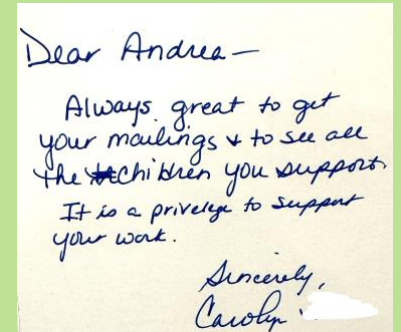 Dear Andrea —
Always great to get
your mailings & to see all
the children you support.
It is a privelege to support
your work.
Sincerely,
Carolyn